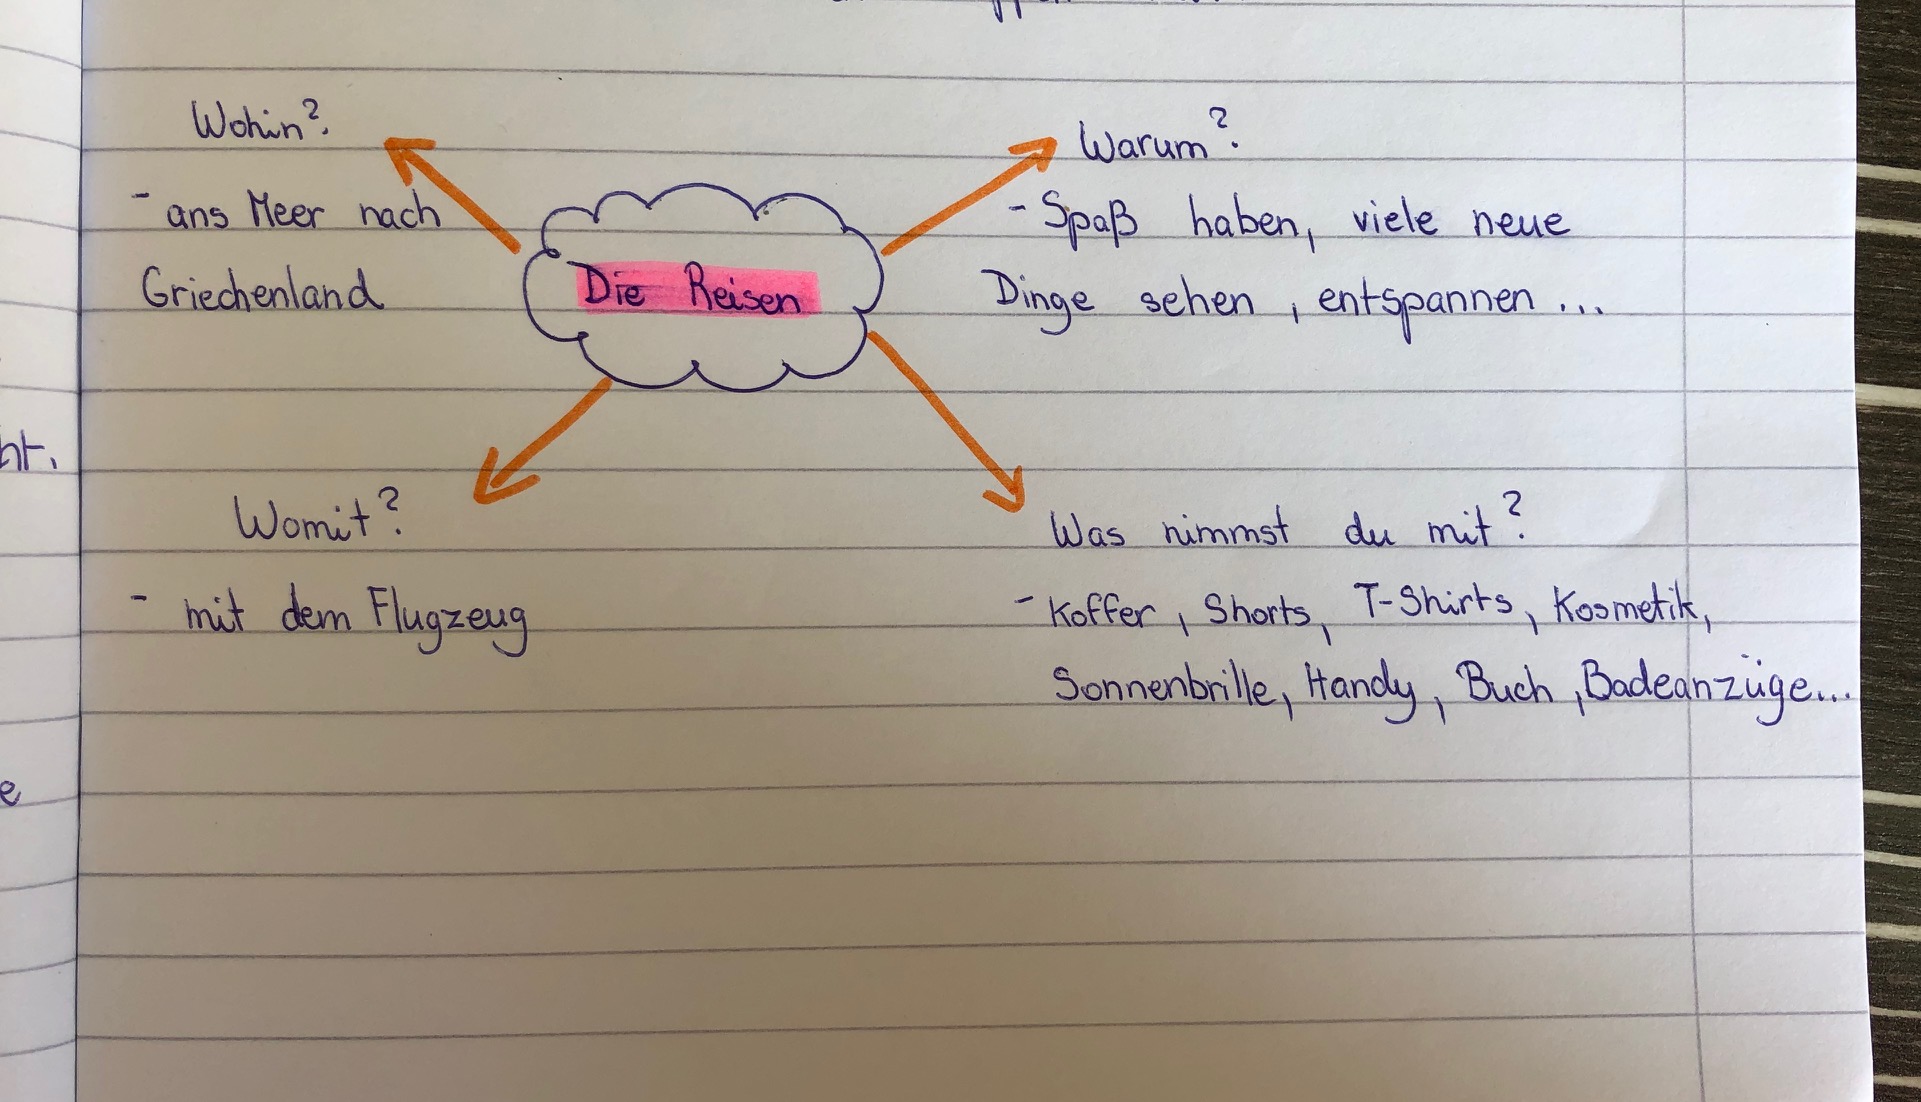 Wohin?
- ans Meer nach
Griechenland
Die Reisen
Warum?
- Spaß haben, viele neue
Dinge sehen, entspannen ...
Womit?
- mit dem Flugzeug
Was nimmst du mit?
- Koffer, Shorts, T-Shirts, Kosmetik,
Sonnenbrille, Handy, Buch, Badeanzüge...
ht.
e